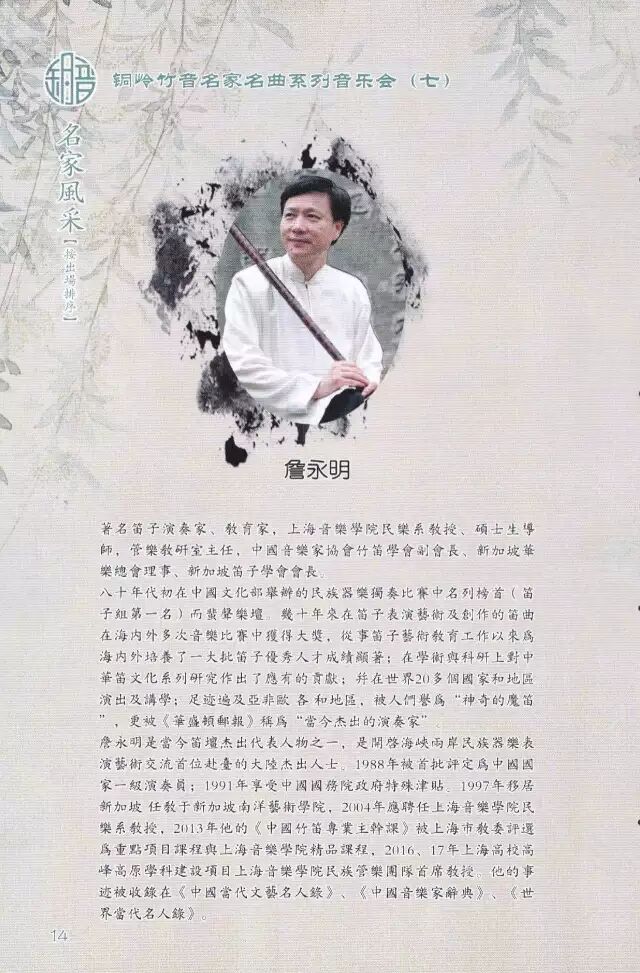 铜岭竹音名家名曲系列音乐会（七）
名家風采【按出場排序】
詹永明
著名笛子演奏家、教育家，上海音樂學院民樂系教授、碩士生導
師，管樂教研室主任，中國音樂家協會竹笛學會副會長、新加坡華
樂總會理事、新加坡笛子學會會長。
八十年代初在中國文化部舉辦的民族器樂獨奏比賽中名列榜首（笛
子組第一名）而蜚聲樂壇。幾十年來在笛子表演藝術及創作的笛曲
在海内外多次音樂比賽中獲得大獎，從事笛子藝術教育工作以來爲
海内外培養了一大批笛子優秀人才成績顯著；在學術與科研上對中
華笛文化系列研究作出了應有的貢獻；并在世界20多個國家和地區
演出及講學；足迹遍及亞非歐 各 和地區，被人們譽爲“神奇的魔笛
”，更被《華盛頓郵報》稱爲“當今杰出的演奏家”。
詹永明是當今笛壇杰出代表人物之一，是開啓海峽兩岸民族器樂表
演藝術交流首位赴臺的大陸杰出人士。1988年被首批評定爲中國國
家一級演奏員；1991年享受中國國務院政府特殊津貼。1997年移居
新加坡 任教于新加坡南洋藝術學院，2004年應聘任上海音樂學院民
樂系教授，2013年他的《中國竹笛專業主幹課》被上海市教委評選
爲重點項目課程與上海音樂學院精品課程，2016、17年上海高校高
峰高原學科建設項目上海音樂學院民族管樂團隊首席教授。他的事
迹被收錄在《中國當代文藝名人錄》、《中國音樂家辭典》、《世
界當代名人錄》。
14